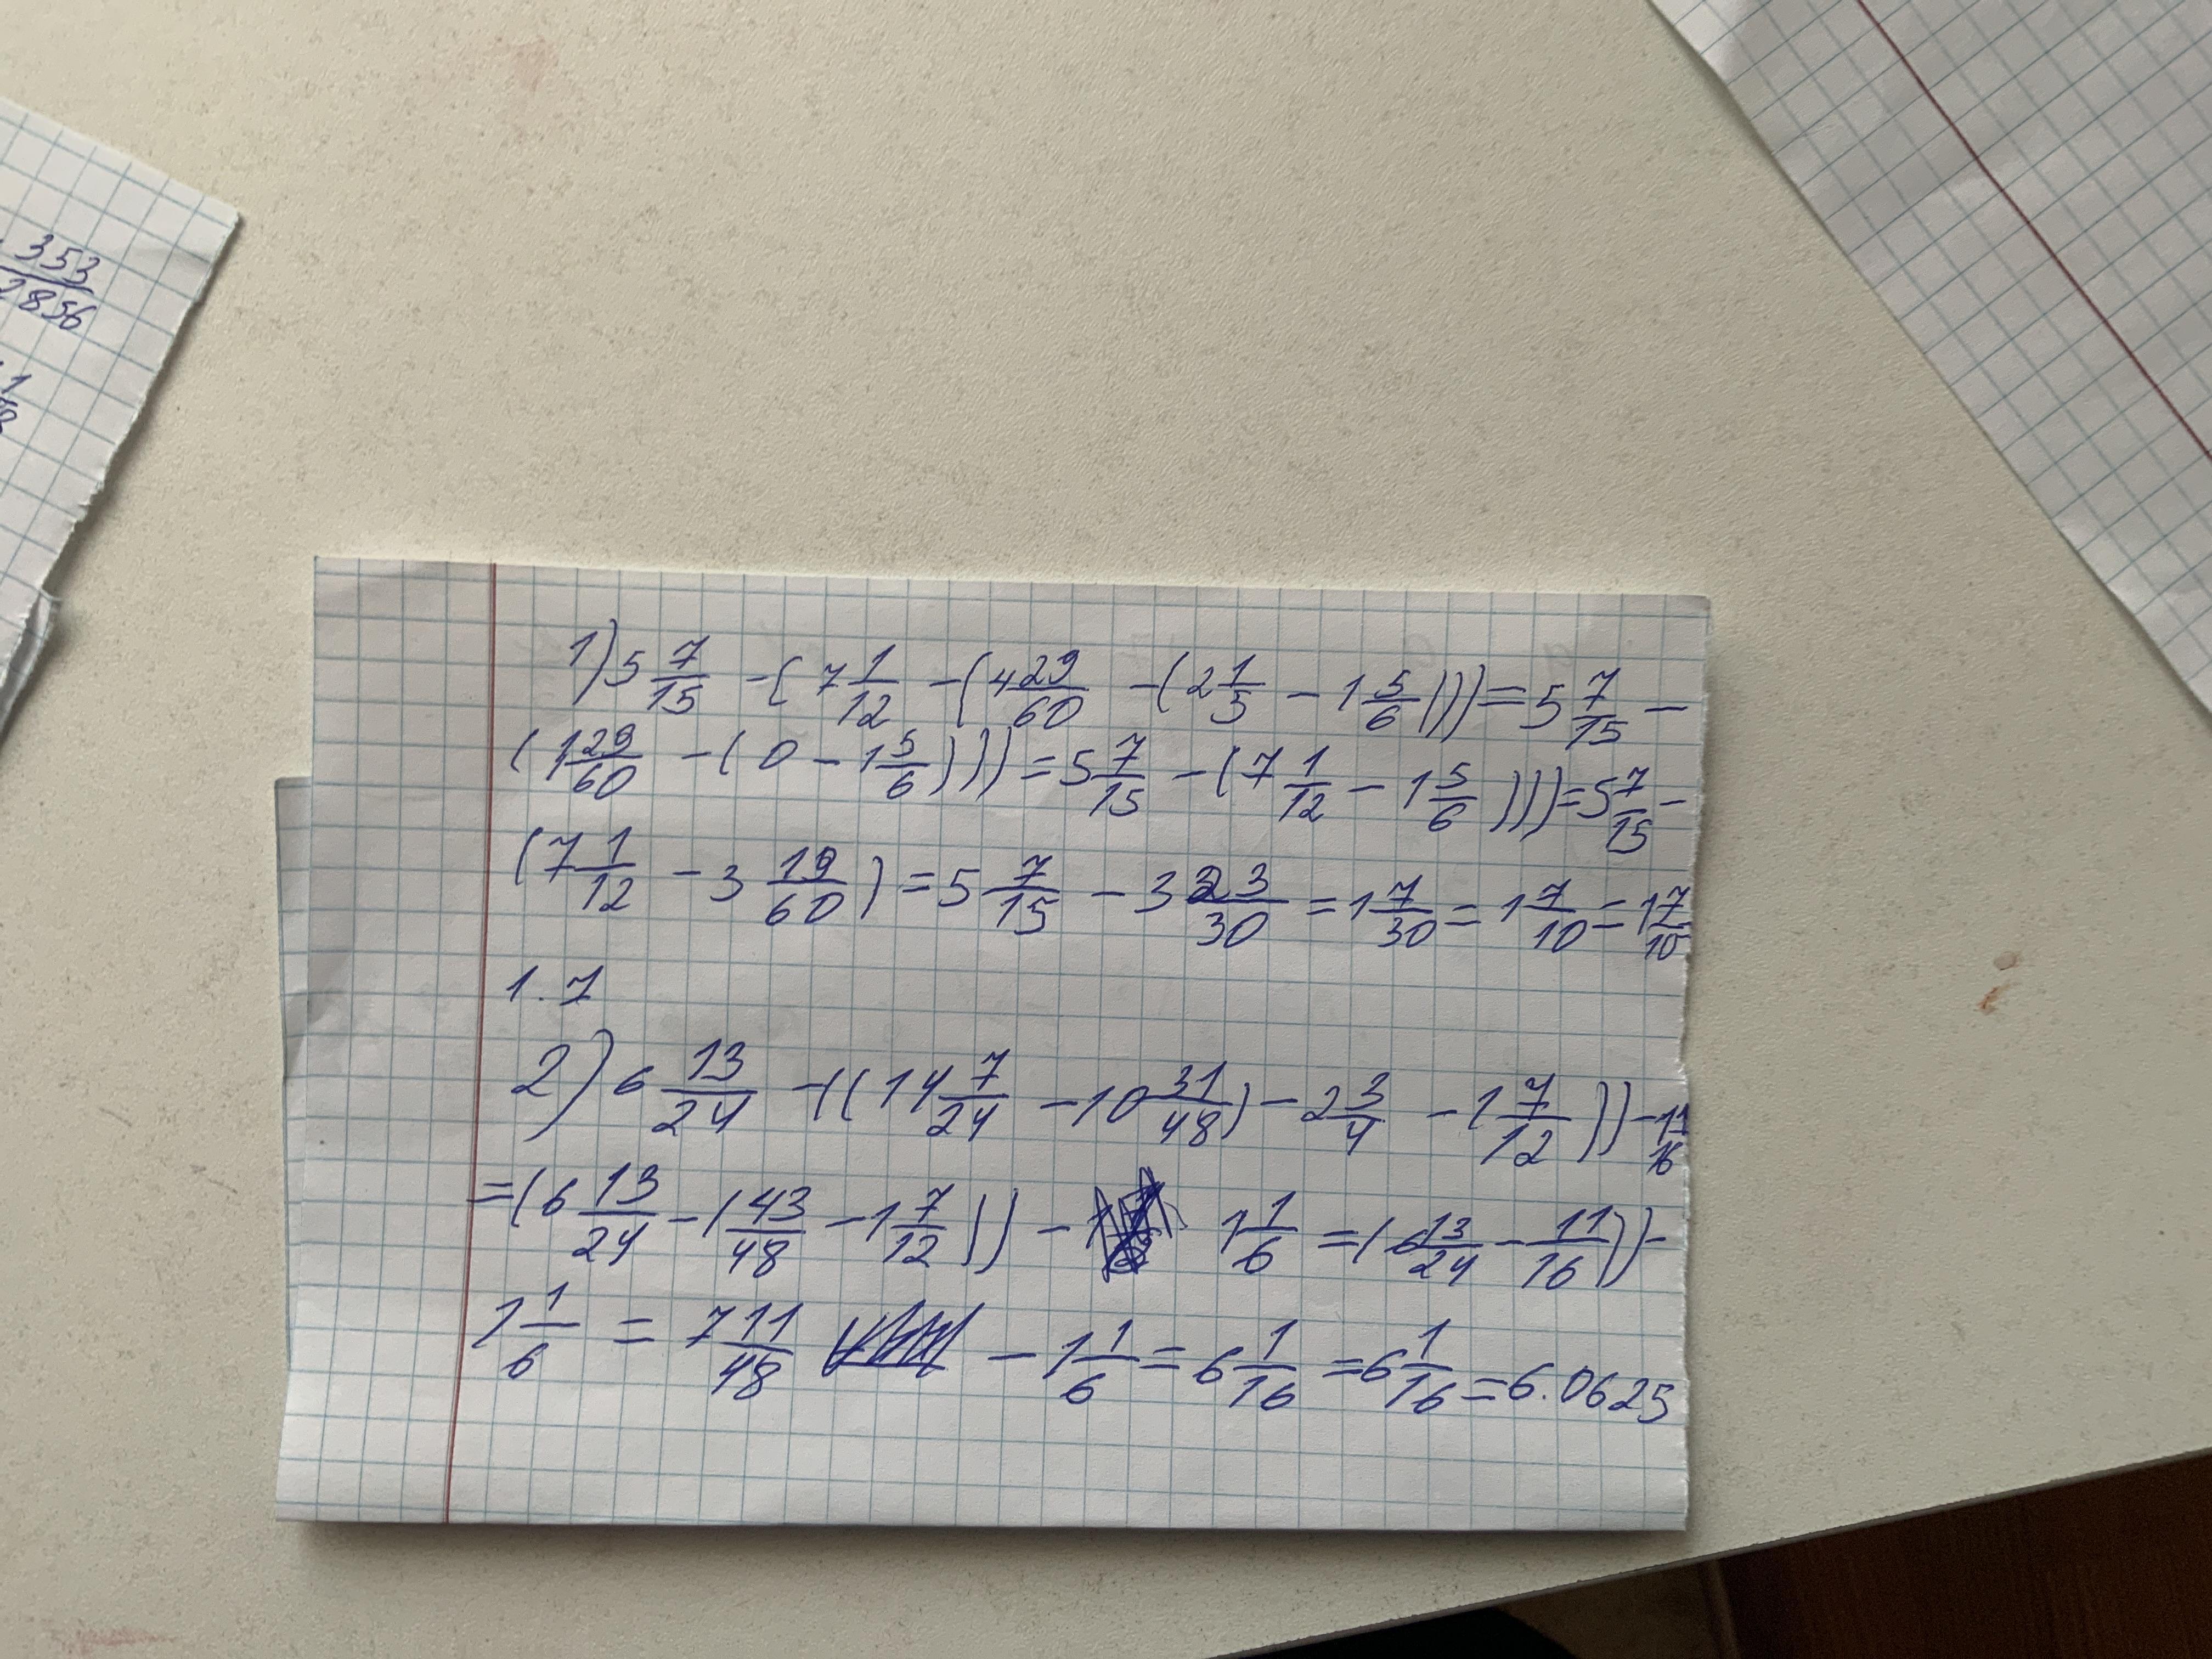 353/2856
1
1) 5 7/15 - (7 1/12 - (4 29/60 - (2 1/5 - 1 5/6))) = 5 7/15 -
(1 29/60 - (0 - 1 5/6))) = 5 7/15 - (7 1/12 - 1 5/6))) = 5 7/15 -
(7 1/12 - 3 19/60) = 5 7/15 - 3 23/30 = 1 7/30 = 1 7/10 = 1 7/10
1.7
2) 6 13/24 - ((14 7/24 - 10 31/48) - 2 3/4 - 1 7/12)) - 1 1/16
= (6 13/24 - 1 43/48 - 1 7/12)) - 1 1/6 = (6 13/24 - 11/16)) -
1 1/6 = 7 11/48 - 1 1/6 = 6 1/16 = 6 1/16 = 6.0625